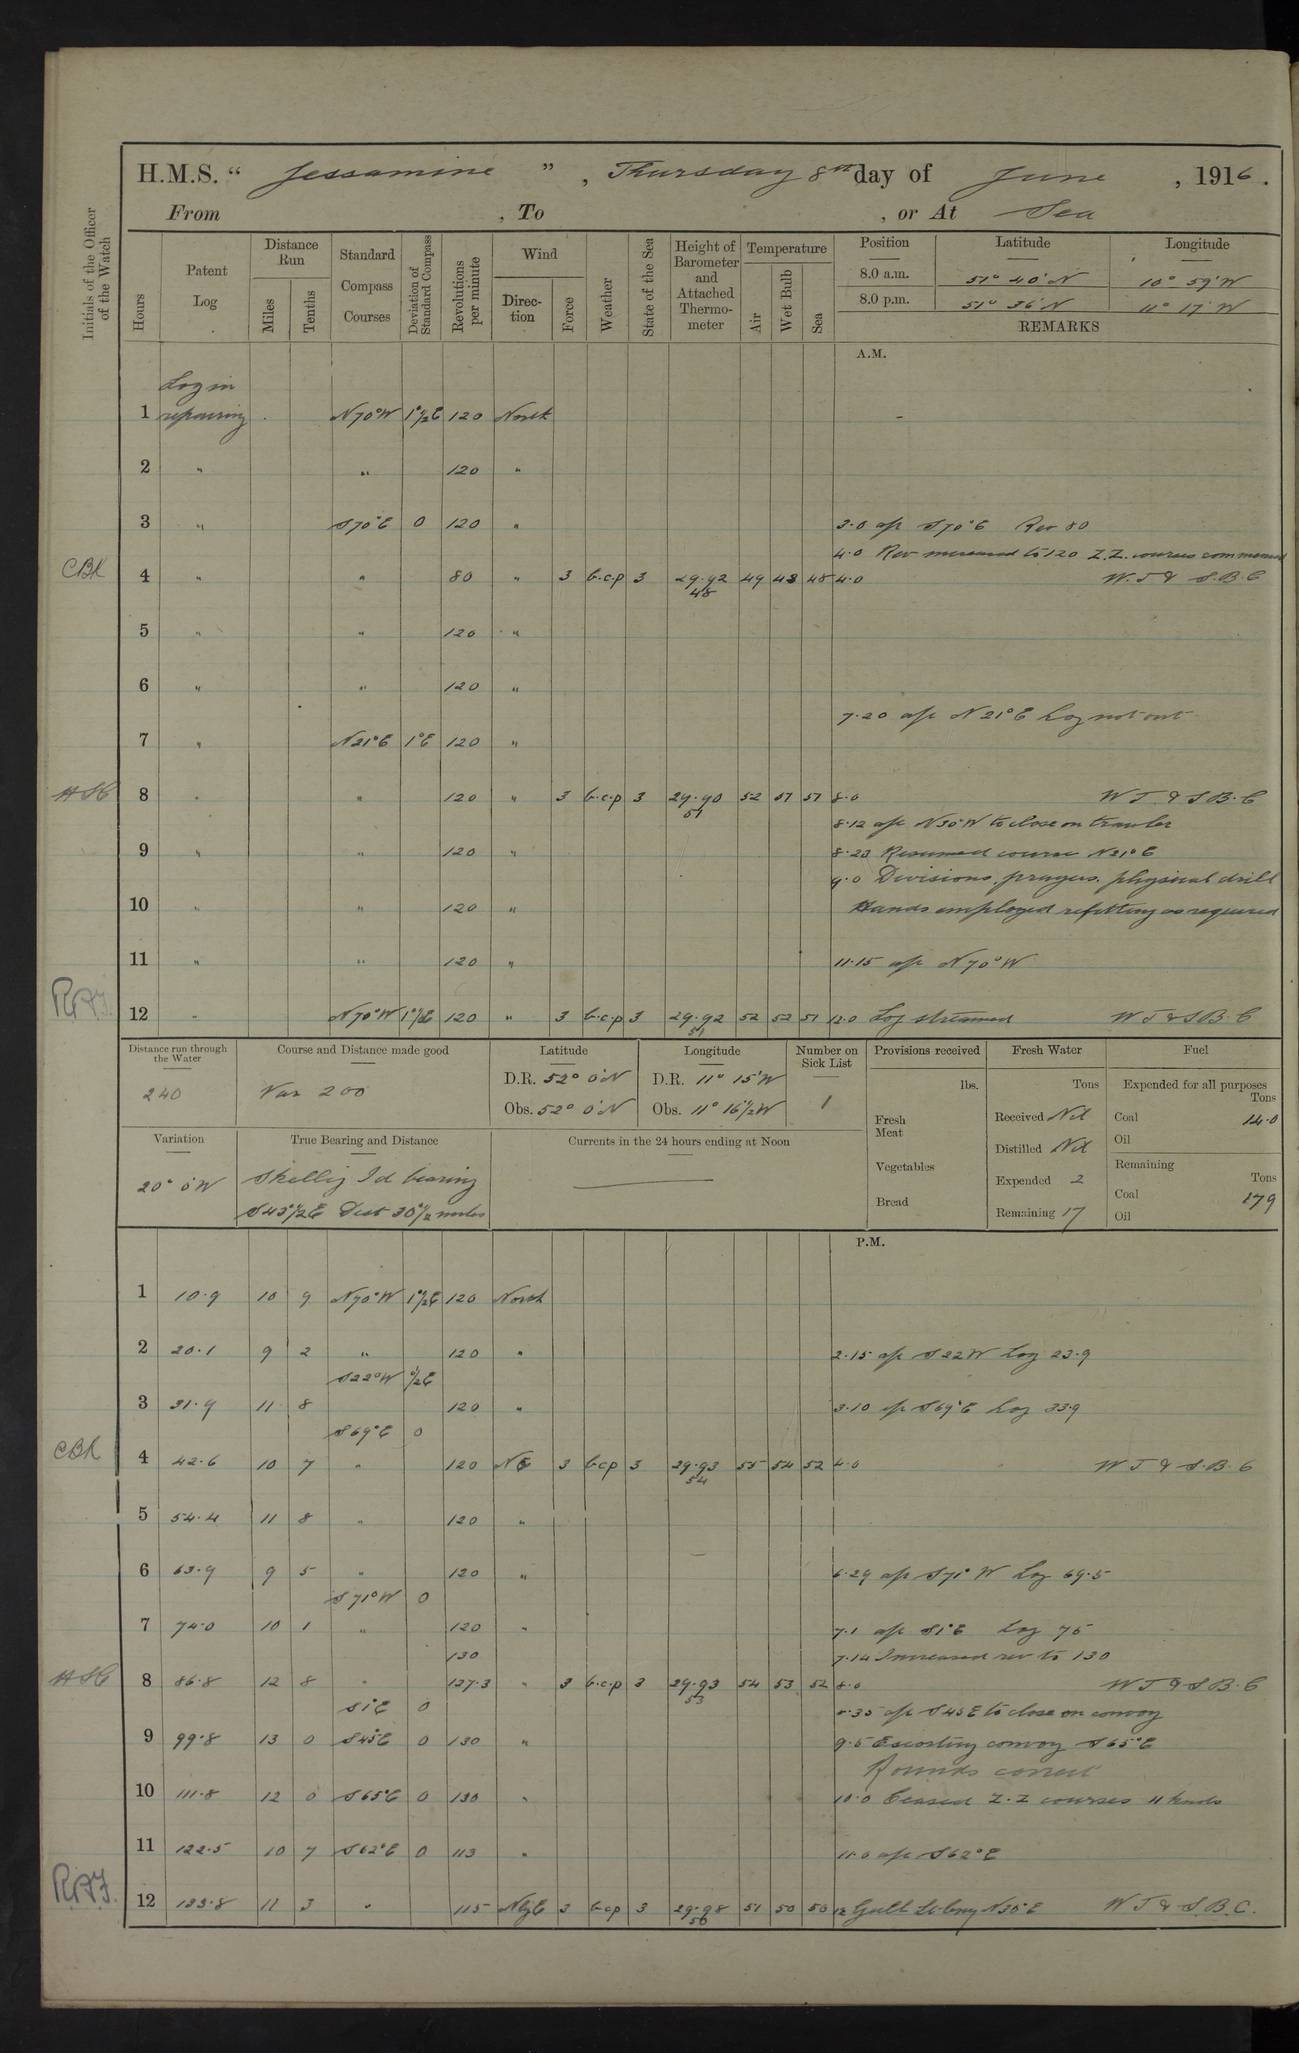 H.M.S. “ Jessamine ” , Thursday 8th day of June , 1916 .
From , To , or At Sea
Initials of the Officer of the Watch
Hours
Patent Log
Distance Run
Miles
Tenths
Standard Compass Courses
Deviation of Standard Compass
Revolutions per minute
Wind
Direction
Force
Weather
State of the Sea
Height of Barometer and Attached Thermometer
Temperature
Air
Wet Bulb
Sea
Position Latitude Longitude
8.0 a.m. 51° 40' N 10° 59' W
8.0 p.m. 51° 36' N 11° 17' W
REMARKS
A.M.
Log in
1 repairing N70°W 1°½E 120 North
2 " " 120 "
3 " S70°E 0 120 " 3·0 a/c S70°E Rev 80
4·0 Rev increased to 120 Z.Z. courses commenced
CBR 4 " " 80 " 3 b.c.p 3 29·92 48 49 48 48 4·0 W.T & S.B.C
5 " " 120 "
6 " " 120 "
7·20 a/c N21°E Log not out
7 " N21°E 1°E 120 "
8 " " 120 " 3 b.c.p 3 29·90 51 52 51 51 8·0 W T. & S B. C
8·12 a/c N30°W to close on trawler
9 " " 120 " 8·23 Resumed course N21°E
9·0 Divisions. prayers. physical drill
10 " " 120 " Hands employed refitting as required
11 " " 120 " 11·15 a/c N70°W
12 " N70°W 1°½E 120 " 3 b.c.p 3 29·92 51 52 52 51 12·0 Log streamed W T & S B. C
Distance run through the Water
240
Course and Distance made good
Var 200
Latitude
D.R. 52° 0' N
Obs. 52° 0' N
Longitude
D.R. 11° 15' W
Obs. 11° 16'½ W
Number on Sick List
1
Provisions received
lbs.
Fresh Meat
Vegetables
Bread
Fresh Water
Tons
Received Nil
Distilled Nil
Expended 2
Remaining 17
Fuel
Expended for all purposes
Tons
Coal 14·0
Oil
Remaining
Tons
Coal 179
Oil
Variation
20° 0' W
True Bearing and Distance
Skellig Id bearing
S43°½E Dist 30½ miles
Currents in the 24 hours ending at Noon
P.M.
1 10·9 10 9 N70°W 1°½E 120 North
2 20·1 9 2 " 120 " 2·15 a/c S22W Log 23·9
S22°W ½E
3 31·9 11 8 120 " 3·10 a/c S69°E Log 33·9
S69°E 0
CBR 4 42·6 10 7 " 120 NE 3 bcp 3 29·93 54 55 54 52 4·0 W T & S.B. C
5 54·4 11 8 " 120 "
6 63·9 9 5 " 120 " 6·29 a/c S71°W Log 69·5
S71°W 0
7 74·0 10 1 " 120 " 7·1 a/c S1°E Log 75
130 7·14 Increased rev to 130
8 86·8 12 8 " 127·3 " 3 b.c.p 3 29·93 53 54 53 52 8·0 W T & S B. C
S1°E 0 8·35 a/c S45E to close on convoy
9 99·8 13 0 S45°E 0 130 " 9·5 Escorting convoy S65°E
Rounds correct
10 111·8 12 0 S65°E 0 130 " 10·0 Ceased Z.Z courses 11 knots
11 122·5 10 7 S62°E 0 113 " 11·0 a/c S62°E
12 133·8 11 3 " 115 NbyE 3 bcp 3 29·98 56 51 50 50 12 N30°E W T & S.B.C.